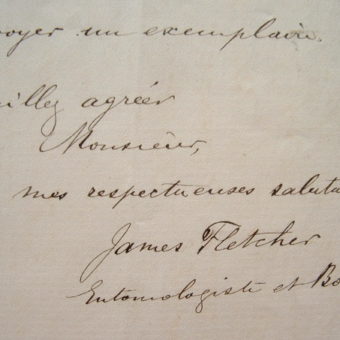 oyer un exemplaire.
illez agréer
Monsieur,
mes respectueuses saluta
James Fletcher
Entomologiste et Bo